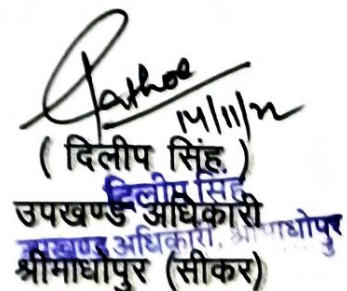 Rathore
14/11/22
( दिलीप सिंह )
दिलीप सिंह
उपखण्ड अधिकारी
उपखण्ड अधिकारी, श्रीमाधोपुर
श्रीमाधोपुर (सीकर)